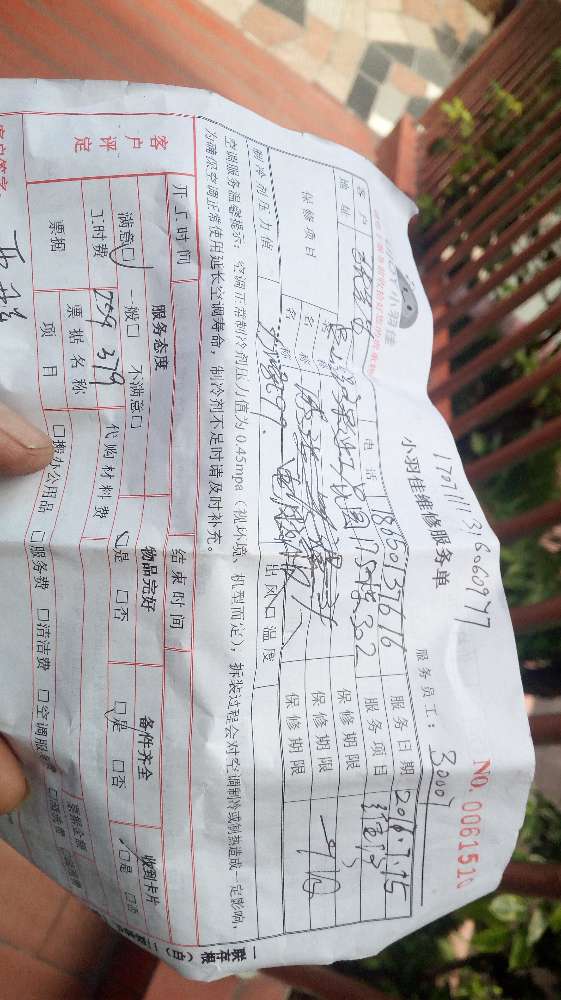 1707111316060977
小羽佳
小羽佳维修服务单
服务员工：30001
NO. 0061510
客户 电话 18660137616 服务日期 2016.7.15
地址 17号楼302 服务项目 维修
保修项目 名称 保修期限
名称 保修期限 一个月
名称 保修期限
制冷剂压力值 出风口温度
空调服务温馨提示：空调正常制冷剂压力值为0.45mpa（视环境、机型而定），拆装过程会对空调制冷或制热造成一定影响，
为确保空调正常使用延长空调寿命，制冷剂不足时请及时补充。
开工时间 结束时间
客户评定 服务态度 物品完好 备件齐全 收到卡片
满意□ 一般□ 不满意□ □是 □否 □是 □否 □是 □否
工时费 代购材料费
票据 票据名称 票据金额
项目 □搬办公用品 □服务费 □清洁费 □空调服
一联存根（白）